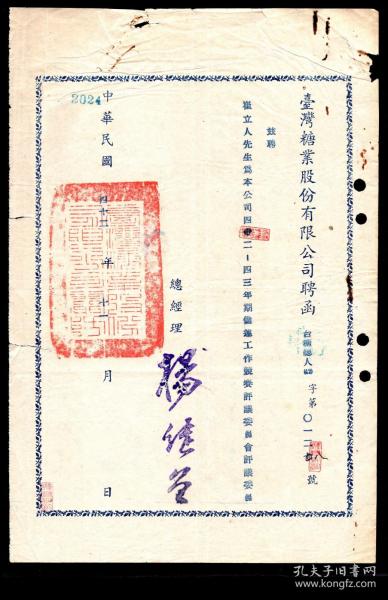 臺灣糖業股份有限公司聘函
台糖總人 字第〇一二 號
茲聘
崔立人先生為本公司四十二—四三年期儲運工作競賽評議委員會評議委員
總經理
楊繼曾
中華民國四十二年十一月 日
2024
孔夫子旧书网